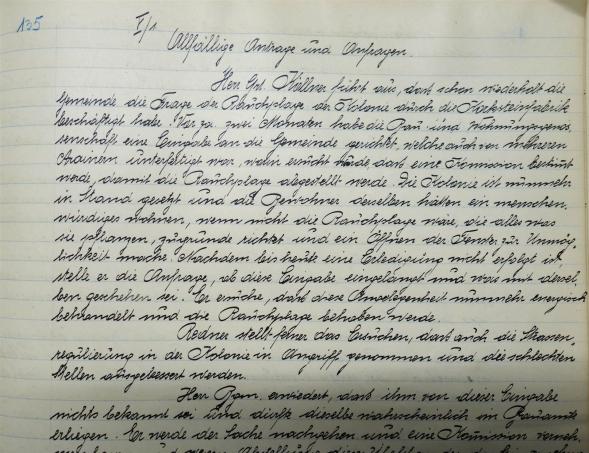 135
I/1
Allfällige Anträge und Anfragen.
Herr Grt. Kellner führt aus, dass schon wiederholt die
Gemeinde die Frage der Rauchplage der Kolonie durch die
beschäftigt habe. Vor ca. zwei Monaten habe die Bau- und Wohnungsgenos-
senschaft eine Eingabe an die Gemeinde gerichtet, welche auch von mehreren
unterfertigt war, worin ersucht wurde, dass eine Kommission bestimt
werde, damit die Rauchplage abgestellt werde. Die Kolonie ist nunmehr
in Stand gesetzt und die Bewohner derselben hätten ein menschen-
würdiges wohnen, wenn nicht die Rauchplage wäre, die alles was
sie pflanzen, zugrunde richtet und ein Öffnen der Fenster zur Unmög-
lichkeit mache. Nachdem bis heute eine Erledigung nicht erfolgt ist
stelle er die Anfrage, ob diese Eingabe eingelangt und was mit dersel-
ben geschehen sei. Er ersuche, dass diese Angelegenheit nunmehr energisch
behandelt und die Rauchplage behoben werde.
Redner stellt ferner das Ersuchen, dass auch die Strassen-
regulierung in der Kolonie in Angriff genommen und die schlechten
Stellen ausgebessert werden.
Herr Bgm. erwiedert, dass ihm von dieser Eingabe
nichts bekannt sei und dürfte dieselbe wahrscheinlich im Bauamte
erliegen. Er werde der Sache nachgehen und eine Kommission